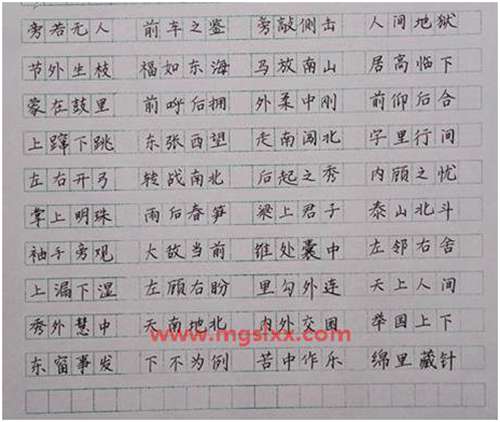 旁若无人 前车之鉴 旁敲侧击 人间地狱
节外生枝 福如东海 马放南山 居高临下
蒙在鼓里 前呼后拥 外柔中刚 前仰后合
上蹿下跳 东张西望 走南闯北 字里行间
左右开弓 转战南北 后起之秀 内顾之忧
掌上明珠 雨后春笋 梁上君子 泰山北斗
袖手旁观 大敌当前 锥处囊中 左邻右舍
上漏下湿 左顾右盼 里勾外连 天上人间
秀外慧中 天南地北 内外交困 举国上下
www.mgslxx.com
东窗事发 下不为例 苦中作乐 绵里藏针